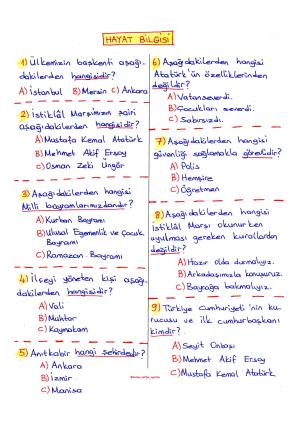 HAYAT BİLGİSİ
1) Ülkemizin başkenti aşağı-
dakilerden hangisidir?
A) İstanbul B) Mersin C) Ankara
2) İstiklâl Marşımızın şairi
aşağıdakilerden hangisidir?
A) Mustafa Kemal Atatürk
B) Mehmet Akif Ersoy
C) Osman Zeki Üngör
3) Aşağıdakilerden hangisi
Milli bayramlarımızdandır?
A) Kurban Bayramı
B) Ulusal Egemenlik ve Çocuk
Bayramı
C) Ramazan Bayramı
4) İlçeyi yöneten kişi aşağı-
dakilerden hangisidir?
A) Vali
B) Muhtar
C) Kaymakam
5) Anıtkabir hangi şehirdedir?
A) Ankara
B) İzmir
C) Manisa
6) Aşağıdakilerden hangisi
Atatürk'ün özelliklerinden
değildir?
A) Vatanseverdi.
B) Çocukları severdi.
C) Sabırsızdı.
7) Aşağıdakilerden hangisi
güvenliği sağlamakla görevlidir?
A) Polis
B) Hemşire
C) Öğretmen
8) Aşağıdakilerden hangisi
İstiklal Marşı okunurken
uyulması gereken kurallardan
değildir?
A) Hazır olda durmalıyız.
B) Arkadaşımızla konuşuruz.
C) Bayrağa bakmalıyız.
9) Türkiye Cumhuriyeti'nin ku-
rucusu ve ilk cumhurbaşkanı
kimdir?
A) Seyit Onbaşı
B) Mehmet Akif Ersoy
C) Mustafa Kemal Atatürk